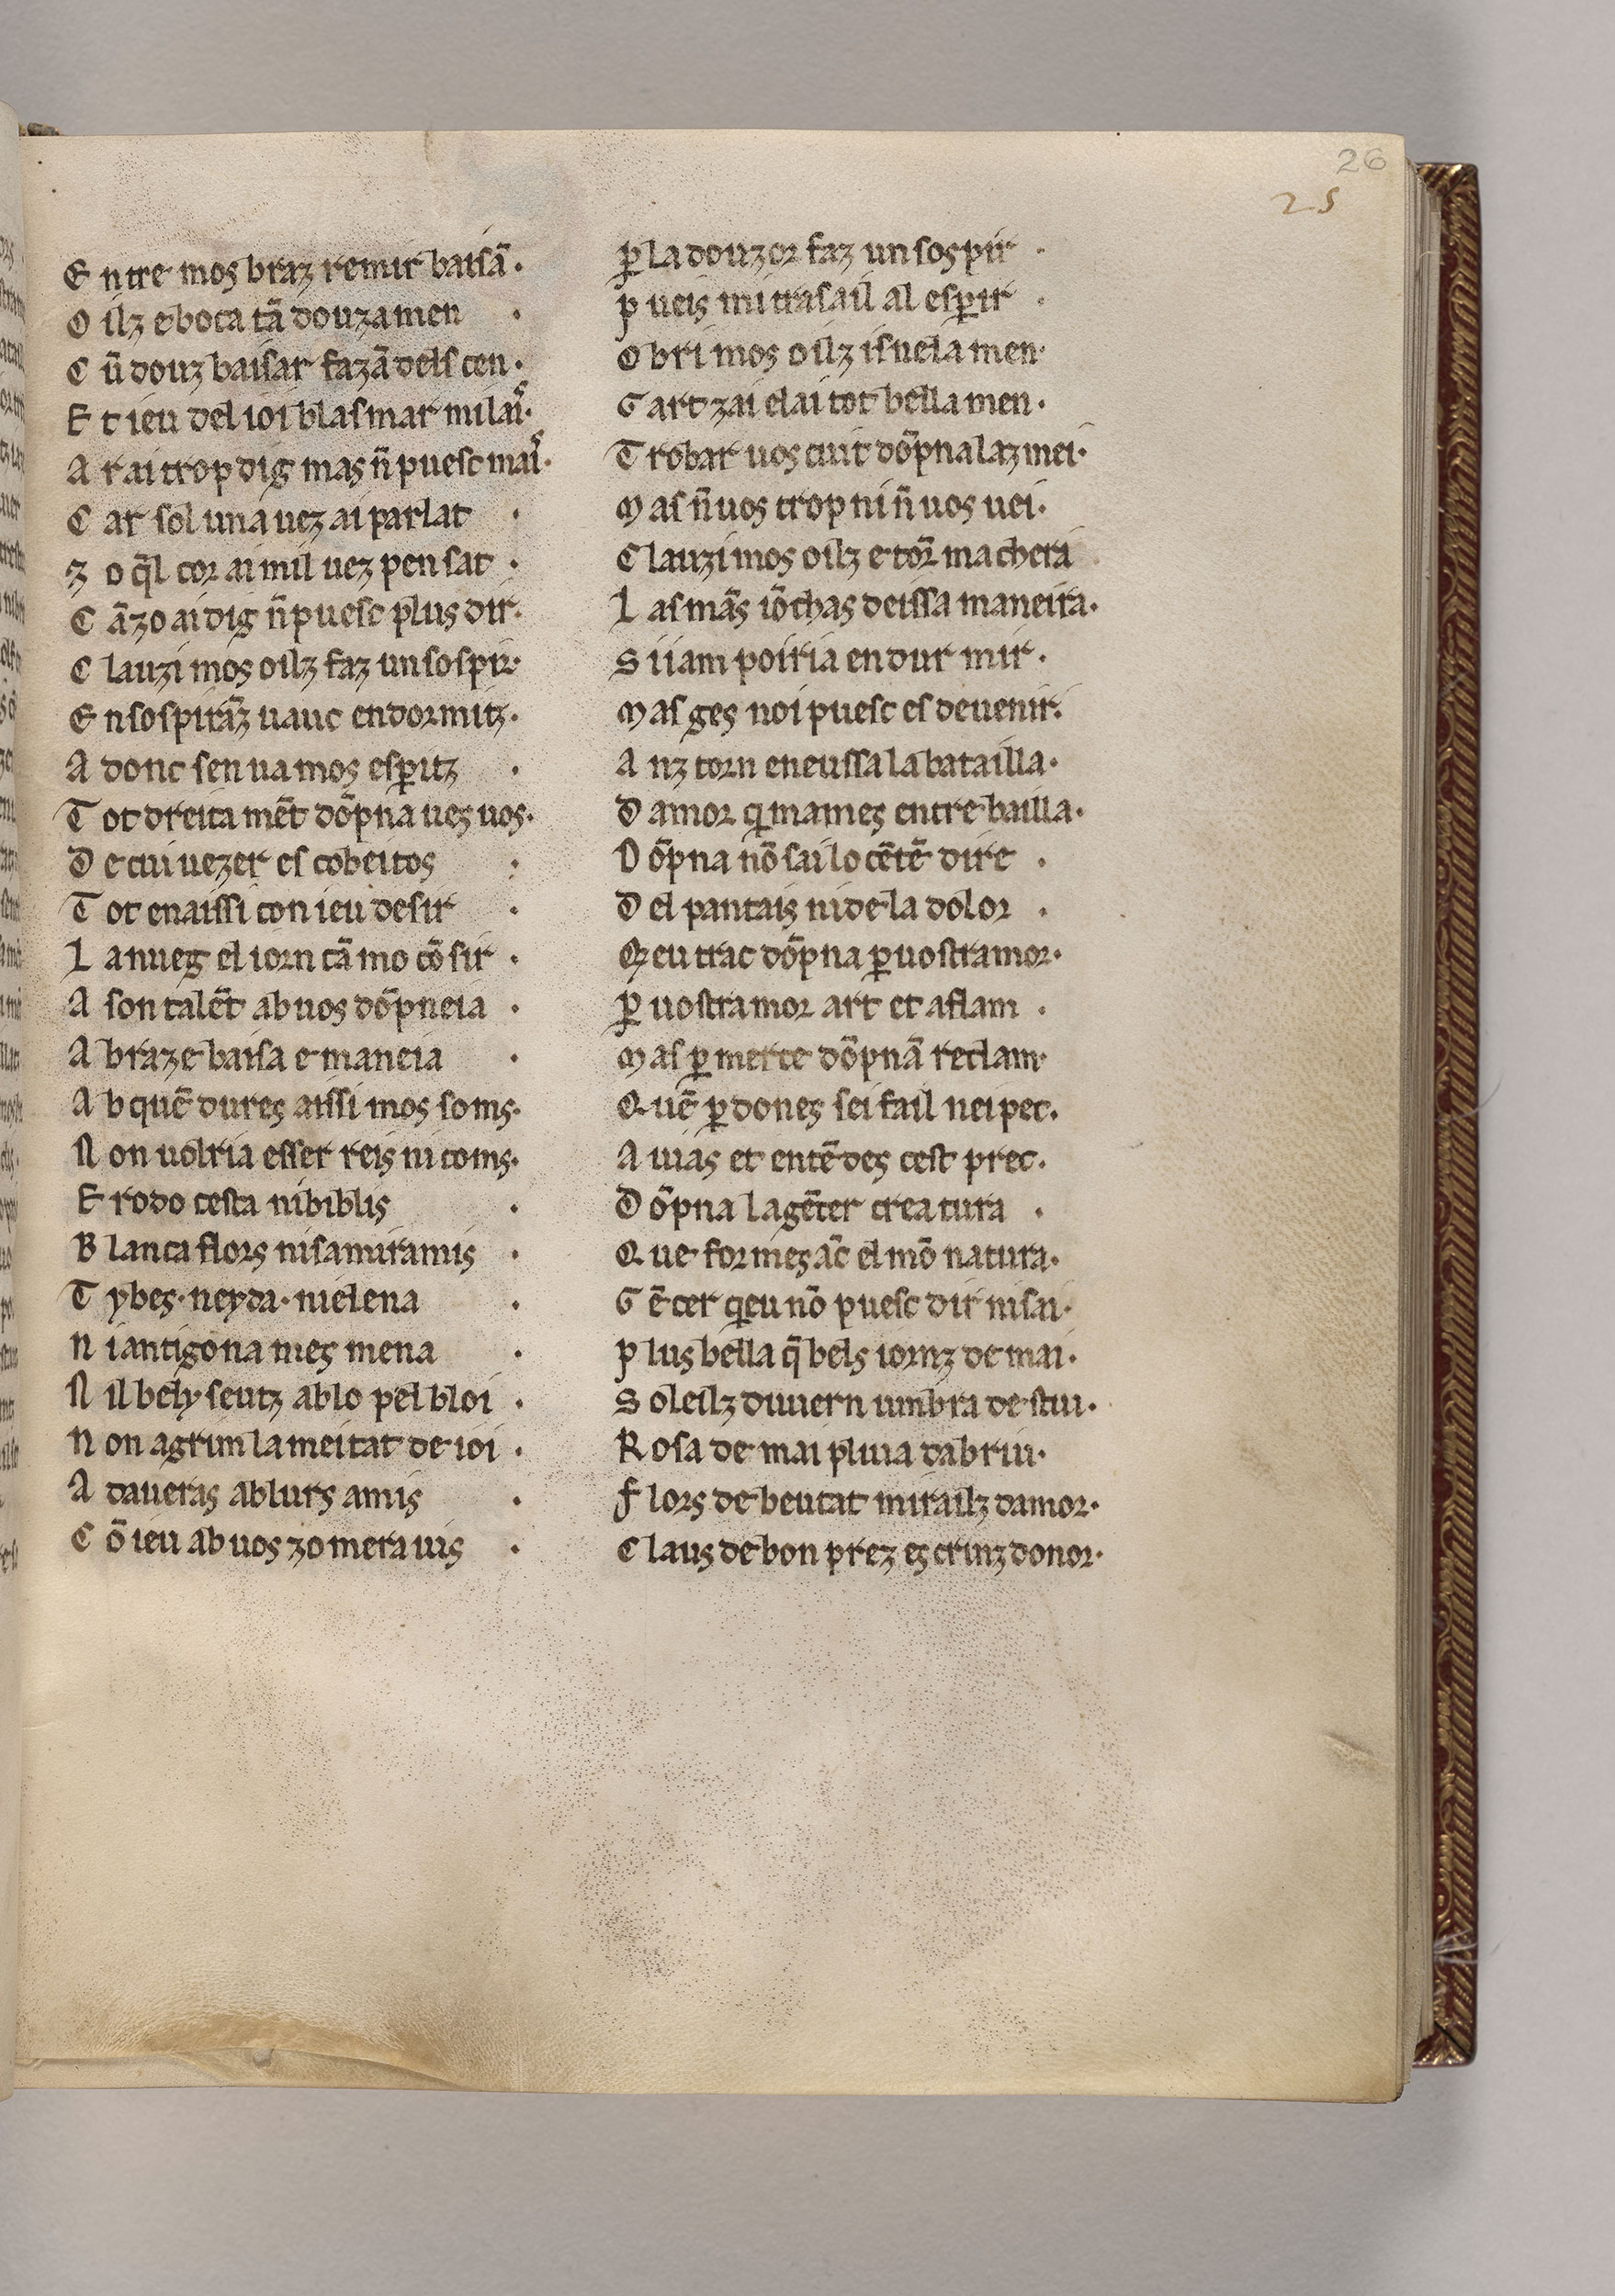 26
25
E ntre mos braz remir baisā·
O ilz e boca tā douzamen ·
C ū douz baisar fazā dels cen·
E t ieu del ioi blasmar mi lais·
A r ai trop dig mas n̄ puesc mais·
C ar sol una uez ai parlat ·
Z o q̄l cor ai mil uez pensat ·
C ā zo ai dig n̄ puesc plus dir·
C lauzi mos oilz faz un sospir·
E n sospirāz uauc endormitz·
A donc sen ua mos esꝑitz ·
T ot dreita mēt dōpna ues uos·
D e cui uezer es cobeitos :
T ot enaissi con ieu desir ·
L a nueg el iorn cā mo cōsir ·
A son talēt ab uos dōpneia ·
A braz e baisa e maneia ·
A b quē dures aissi mos soms·
N on uolria esser reis ni coms·
E rodocesta ni biblis ·
B lancaflors ni samiramis ·
T ybes· ney da· ni elena ·
N i antigona nies mena ·
N il bely seutz ab lo pel bloi ·
N on agrim la meitat de ioi ·
A daueras ab lurs amis ·
C ō ieu ab uos zo mera uis ·
ꝑ la douzor faz un sospir ·
P ueis mi trasail al esꝑir ·
O bri mos oilz isnela men·
G art zai e lai tot bella men·
T robar uos cuit dōpna laz mei·
M as n̄ uos trop ni n̄ uos uei·
C lauzi mos oilz e tor̄ ma chera
L as mās iōchas deissa maneira·
S i iam poiria endurmir·
M as ges noi puesc esdeuenir·
A nz torn eneussa la batailla·
D amor q̱ mames entrebailla·
D ōpna nō sai lo cētē dire ·
D el pantais ni de la dolor ·
Q eu trac dōpna ꝑ uostramor·
ꝑ uostramor art et aflam ·
M as ꝑ merce dōpnā reclam·
Q uē ꝑdones sei fail nei pec·
A uias et entēdes cest prec·
D ōpna la gēcer creatura ·
Q ue formes āc el mō natura·
G ēcer q̱eu nō puesc dir ni sai·
P lus bella q̄ bels iornz de mai·
S oleilz diuuern umbra destiu·
R osa de mai pluia dabriu·
F lors de beutat mirailz damor·
C laus de bon prez escrinz donor·